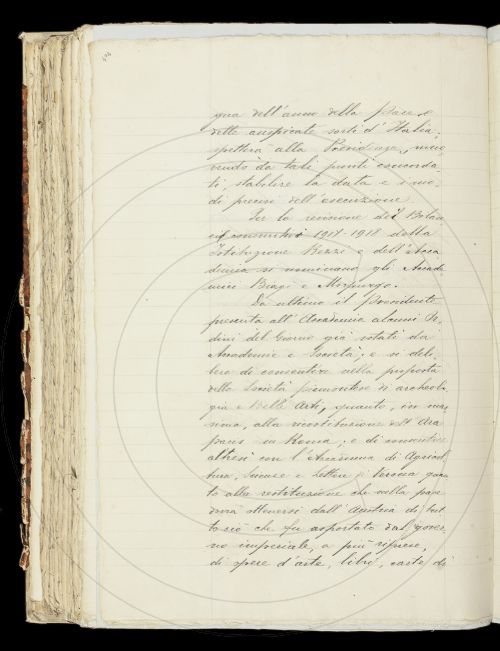 gna dell'anno della Pace e
delle auspicate sorti d'Italia;
spetterà alla Presidenza, muo
vendo da tali punti concorda-
ti, stabilire la data e i mo-
di precisi dell'esecuzione.
Per la revisione dei Bilan
ci consuntivi 1917-1918 della
Istituzione Bezzi e dell'Acca
demia si nominano gli Accade
mici Biagi e Morpurgo.
Da ultimo il Presidente
presenta all'Accademia alcuni Or-
dini del Giorno già votati da
Accademie e Società; e si deli-
bera di consentire nella proposta
della Società piemontese di archeolo
gia e belle Arti, quanto, in mas
sima, alla ricostituzione dell'Ara
pacis in Roma; e di consentire
altresì con l'Accademia di Agricol
tura, Scienze e Lettere di Verona quan
to alla restituzione che nella pace
dovrà ottenersi dall'Austria di tut
to ciò che fu asportato dal gover-
no imperiale, a più riprese,
di opere d'arte, libri, carte di